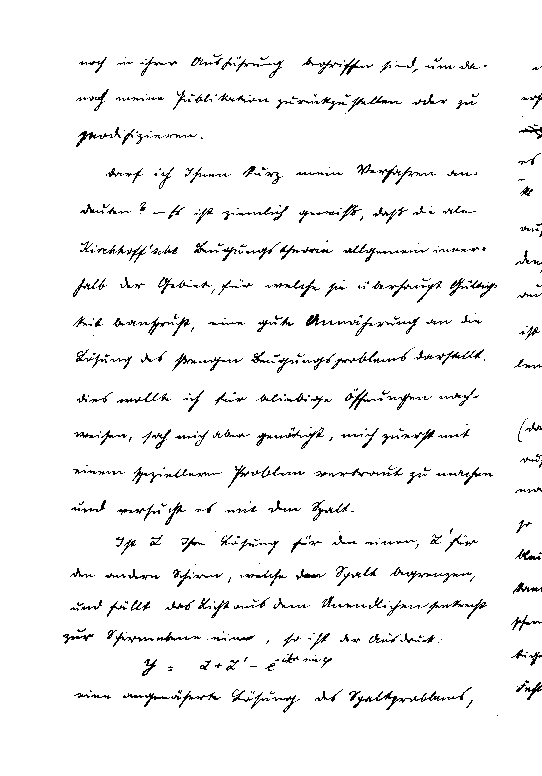 noch in ihrer Ausführung begriffen sind, um da-
nach meine Publikation zurückzustellen oder zu
modifizieren.
Darf ich Ihnen kurz mein Verfahren an-
deuten? – Es ist ziemlich gewiß, daß die alte
Kirchhoff'sche Beugungstheorie allgemein inner-
halb der Gebiete, für welche sie überhaupt Gültig-
keit beansprucht, eine gute Annäherung an die
Lösung des strengen Beugungsproblems darstellt.
Dies wollte ich für beliebige Öffnungen nach-
weisen, sah mich aber genötigt, mich zuerst mit
einem spezielleren Problem vertraut zu machen
und versuchte es mit dem Spalt.
Ist Z Ihre Lösung für den einen, Z' für
den andern Schirm, welche den Spalt begrenzen,
und fällt das Licht aus dem Unendlichen senkrecht
zur Schirmebene ein, so ist der Ausdruck:
y = Z + Z' –
eine angenäherte Lösung des Spaltproblems,